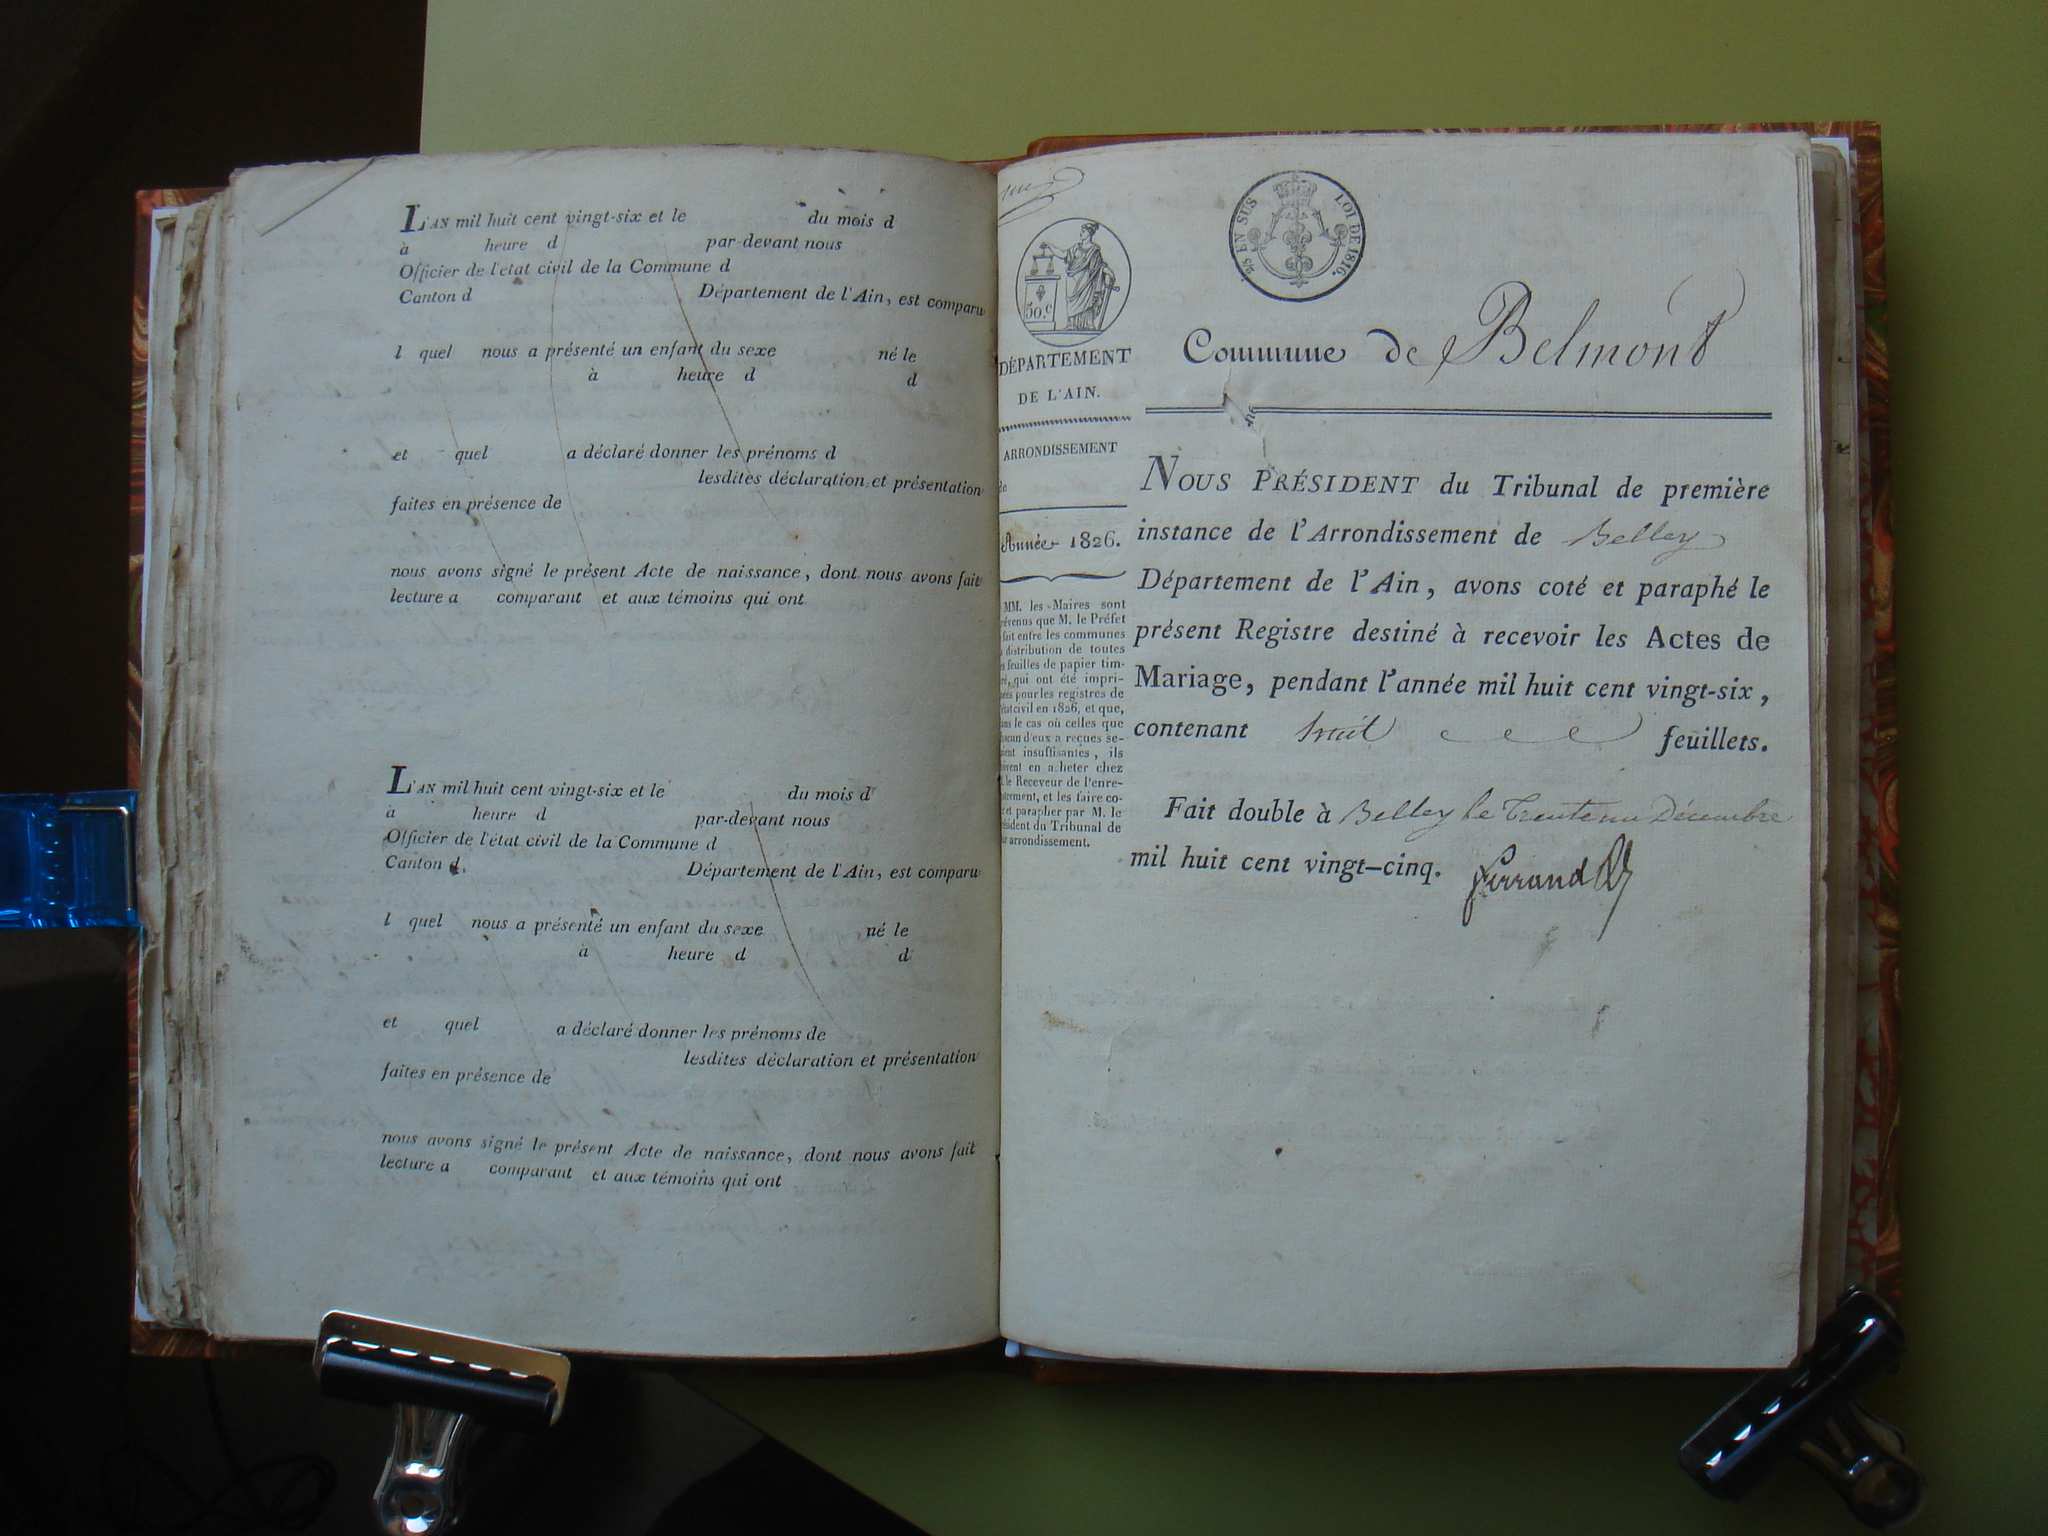 L'AN mil huit cent vingt-six et le du mois d
à heure d par-devant nous
Officier de l'état civil de la Commune d
Canton d Département de l'Ain, est comparu
l quel nous a présenté un enfant du sexe né le
à heure d d
et quel a déclaré donner les prénoms d
lesdites déclaration et présentation
faites en présence de
nous avons signé le présent Acte de naissance, dont nous avons fait
lecture a comparant et aux témoins qui ont
L'AN mil huit cent vingt-six et le du mois d
à heure d par-devant nous
Officier de l'état civil de la Commune d
Canton d. Département de l'Ain, est comparu
l quel nous a présenté un enfant du sexe né le
à heure d d
et quel a déclaré donner les prénoms de
lesdites déclaration et présentation
faites en présence de
nous avons signé le présent Acte de naissance, dont nous avons fait
lecture a comparant et aux témoins qui ont
50.c
DÉPARTEMENT
DE L'AIN.
ARRONDISSEMENT
de
Année 1826.
MM. les Maires sont
que M. le Préfet
fait entre les communes
distribution de toutes
feuilles de papier tim-
qui ont été impri-
pour les registres de
civil en 1826, et que,
le cas où celles que
d'eux a reçues se-
insuffisantes, ils
en acheter chez
le Receveur de l'enre-
et les faire co-
et parapher par M. le
du Tribunal de
arrondissement.
EN SUS LOI DE 1816.
Commune de Belmont
NOUS PRÉSIDENT du Tribunal de première
instance de l'Arrondissement de Belley
Département de l'Ain, avons coté et paraphé le
présent Registre destiné à recevoir les Actes de
Mariage, pendant l'année mil huit cent vingt-six,
contenant huit feuillets.
Fait double à Belley le Trente un Décembre
mil huit cent vingt-cinq.